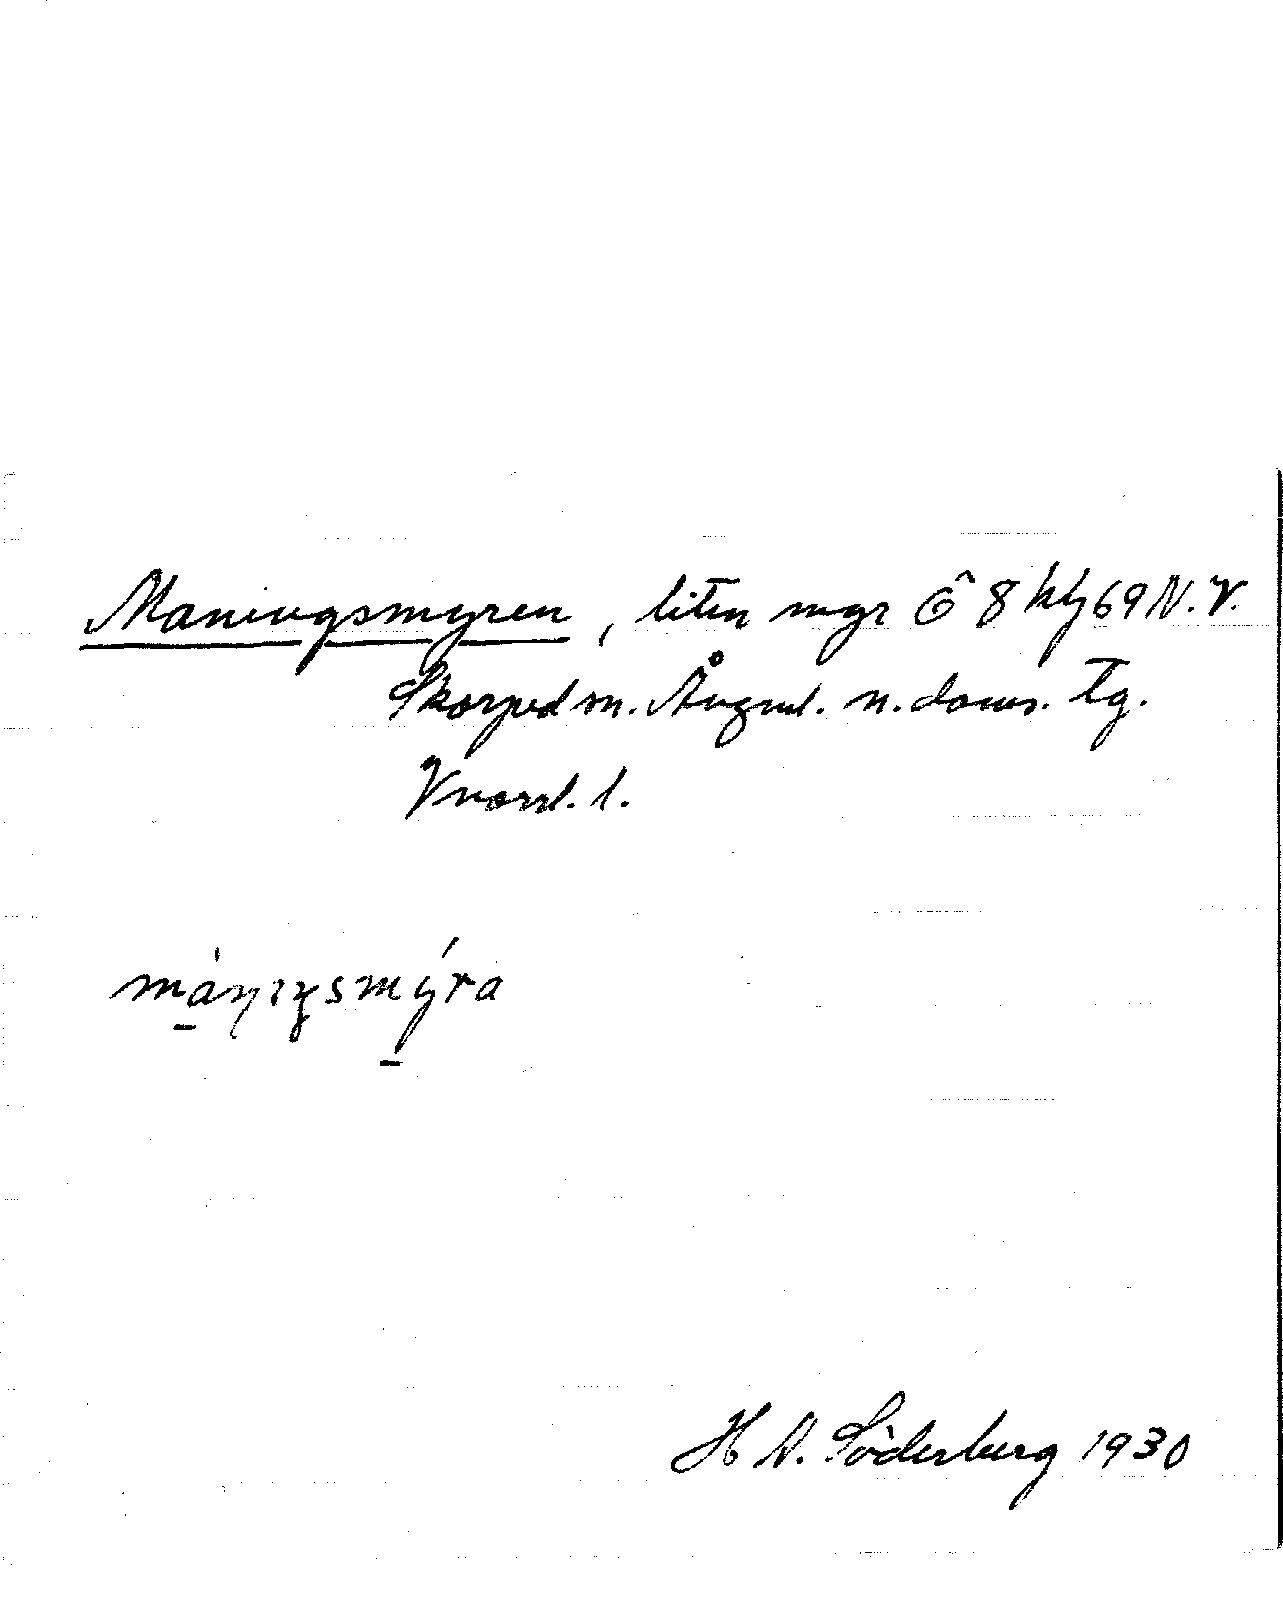 Maningsmyren, liten myr Ö 8 kbl 69 N.V.
Skorped sn. Ångml. n. doms. Tg.
Vnorrl. l.
máŋıŋsmýra
H N. Söderberg 1930